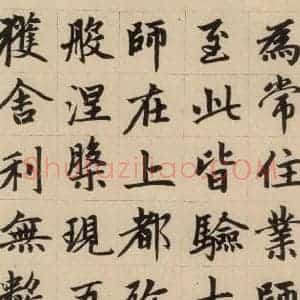 為常住業師
至此皆驗大
師在上都弥
般涅槃現五
獲舍利無數